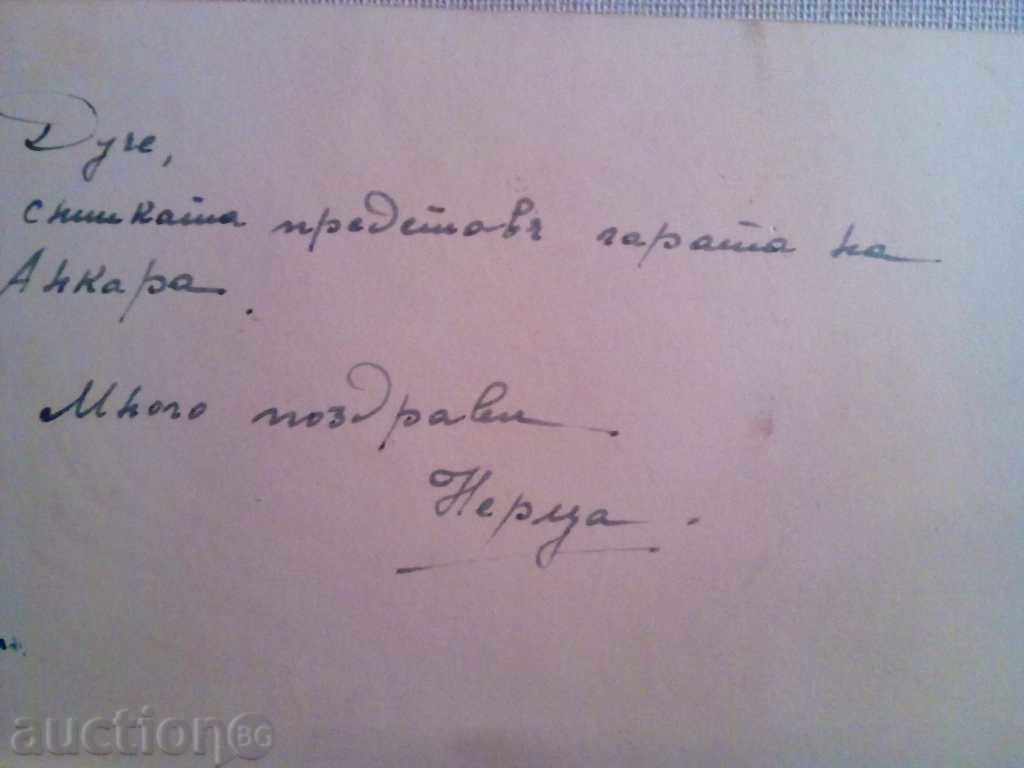 Дуче,
снимката представя гарата на
Анкара.
Много поздрави.
Нерца.
auctionBG